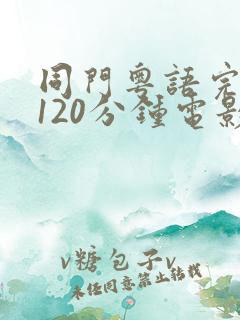 同門粵語完
120分鍾電影
v糖包子v
未经同意禁止转载